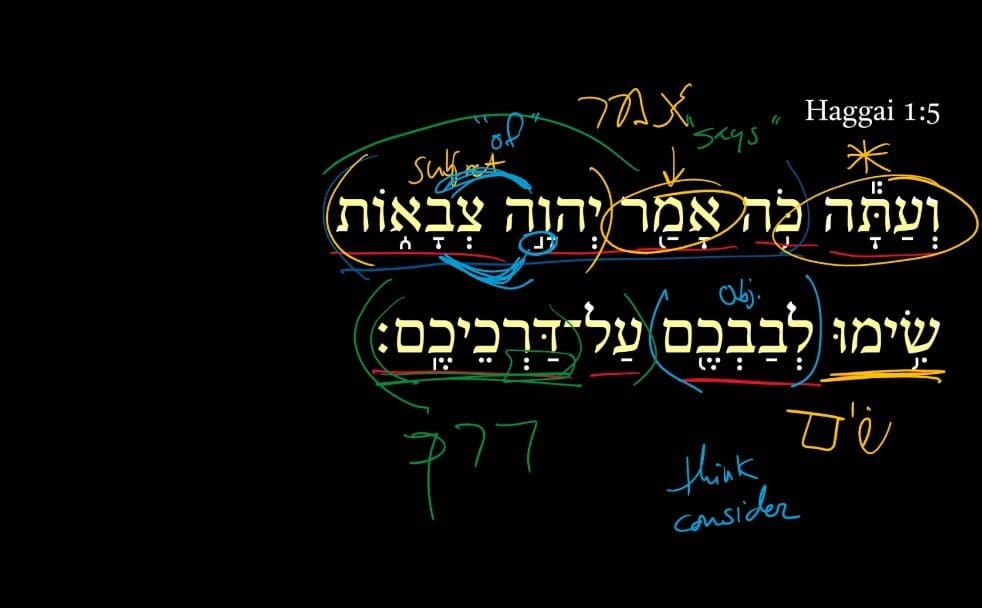 Haggai 1:5
אמר
"says"
"of"
subject
וְעַתָּ֕ה כֹּ֥ה אָמַ֖ר יְהוָ֣ה צְבָא֑וֹת
obj.
שִׂ֥ימוּ לְבַבְכֶ֖ם עַל־דַּרְכֵיכֶֽם׃
שׂים
דרך
think
consider